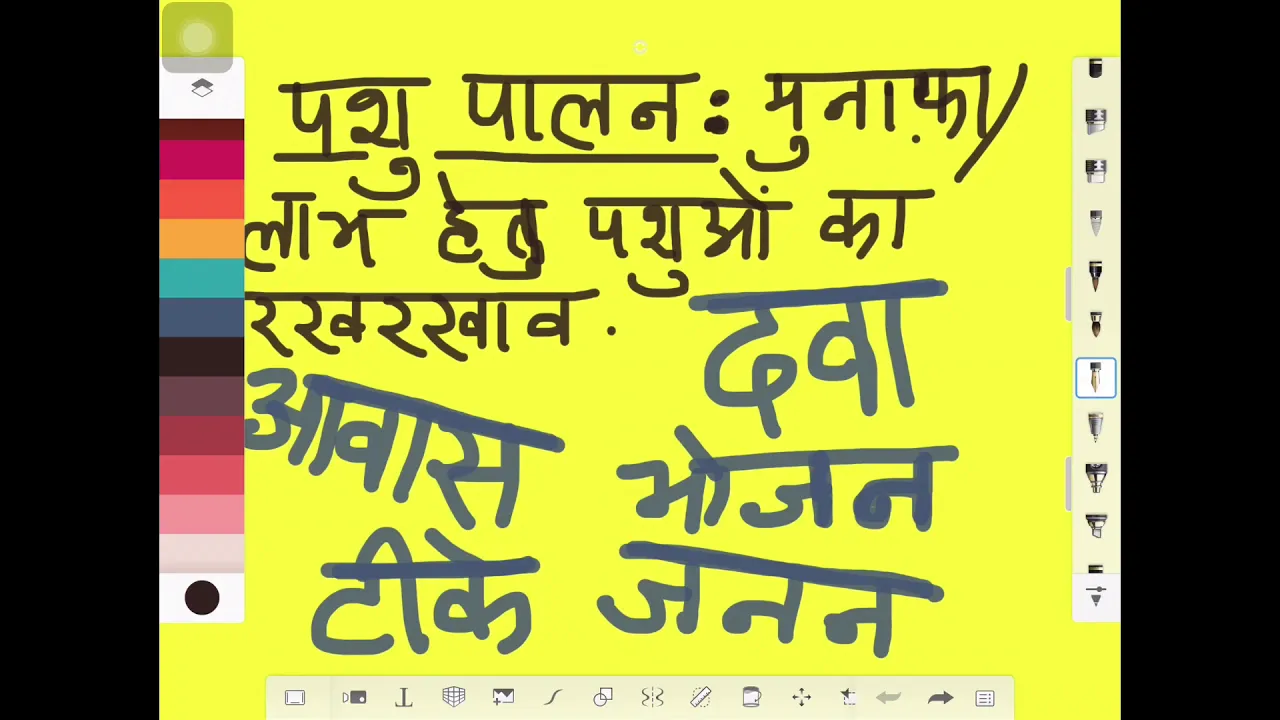 पशु पालन : मुनाफ़ा/
लाभ हेतु पशुओं का
रखरखाव .
दवा
आवास
भोजन
टीके
जनन